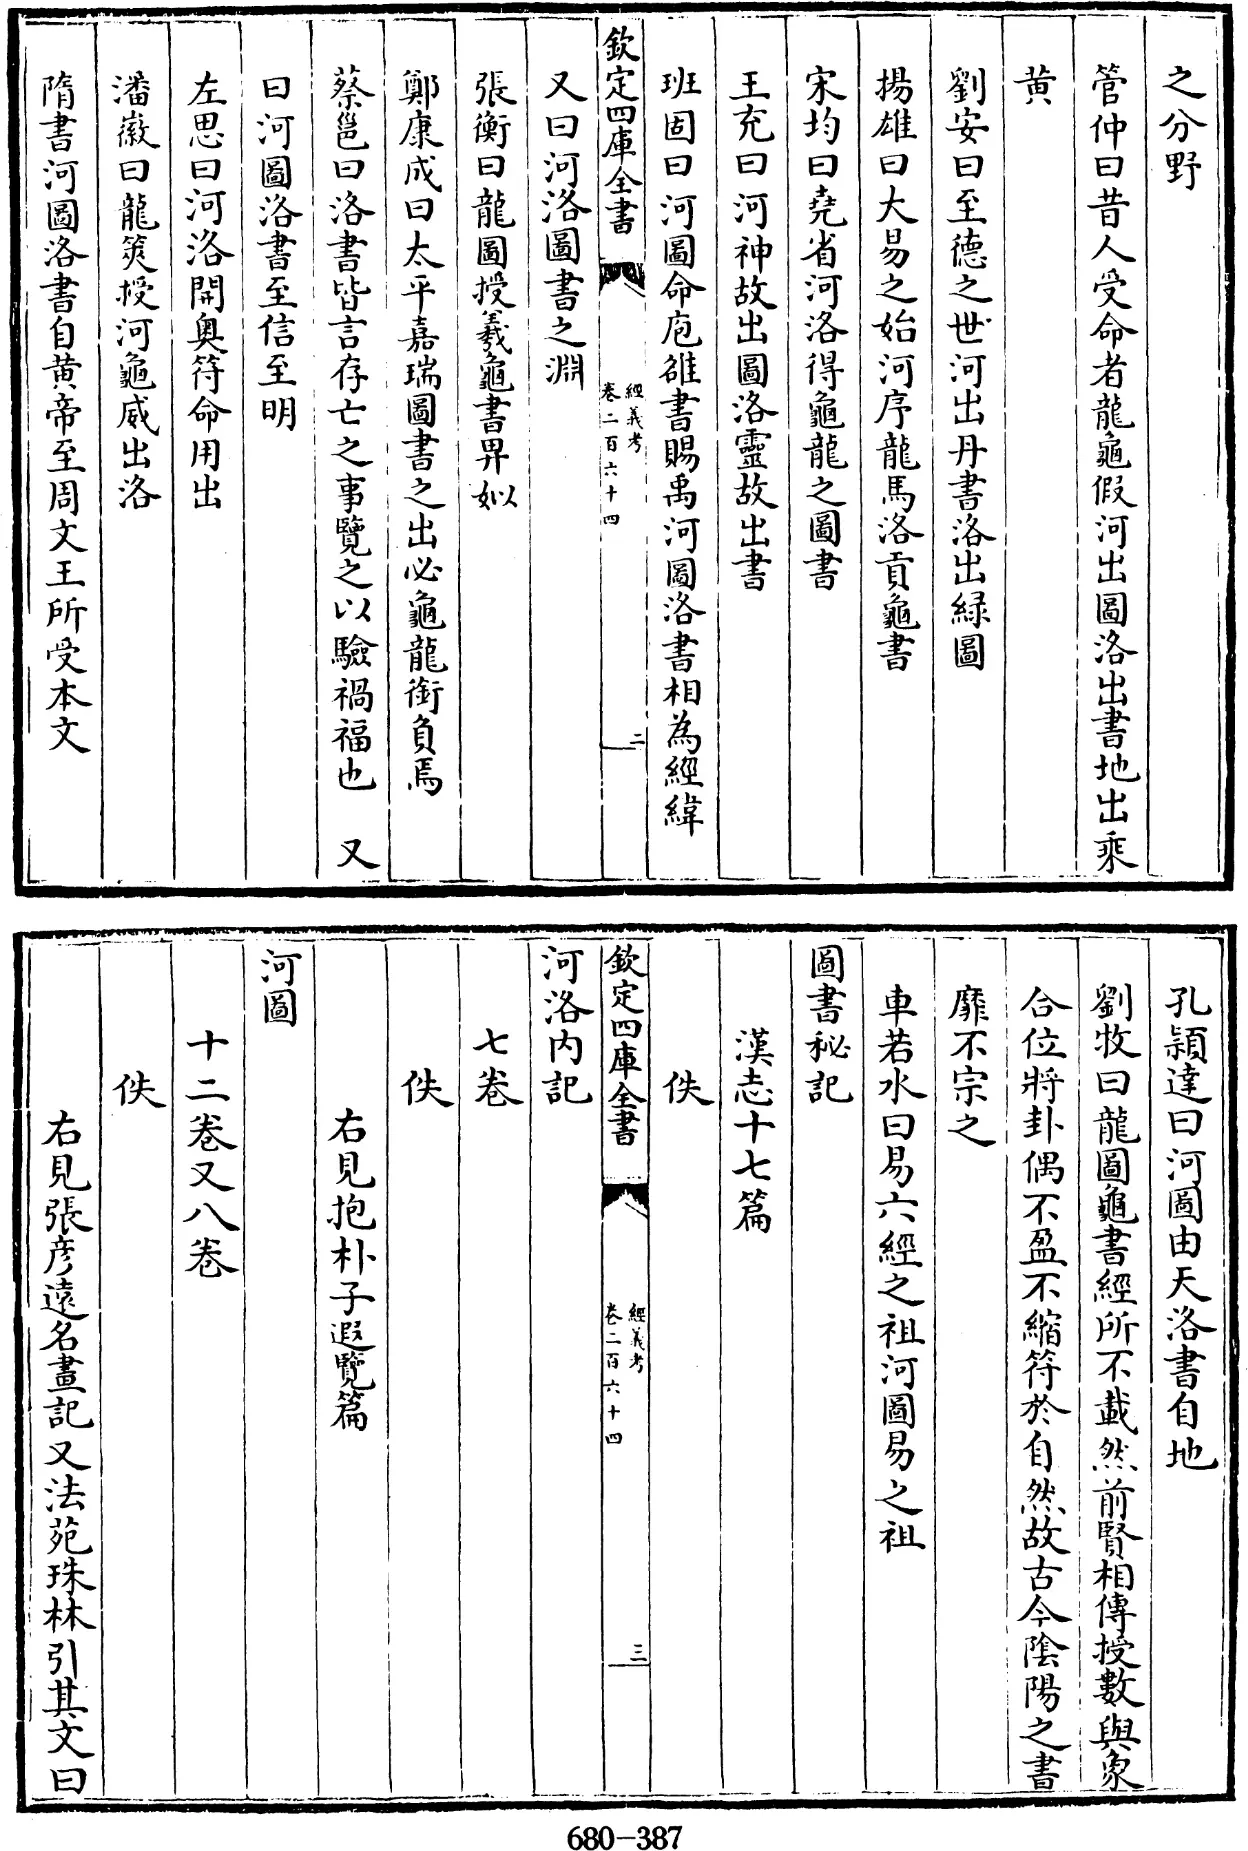 之分野
管仲曰昔人受命者龍龜假河出圖洛出書地出乘
黄
劉安曰至德之世河出丹書洛出緑圖
揚雄曰大易之始河序龍馬洛貢龜書
宋均曰堯省河洛得龜龍之圖書
王充曰河神故出圖洛靈故出書
班固曰河圖命庖雒書賜禹河圖洛書相為經緯
欽定四庫全書
經義考
卷二百六十四
二
又曰河洛圖書之淵
張衡曰龍圖授羲龜書畀姒
鄭康成曰太平嘉瑞圖書之出必龜龍銜負焉
蔡邕曰洛書皆言存亡之事覽之以驗禍福也 又
曰河圖洛書至信至明
左思曰河洛開奥符命用出
潘徽曰龍筴授河龜威出洛
隋書河圖洛書自黄帝至周文王所受本文
孔穎達曰河圖由天洛書自地
劉牧曰龍圖龜書經所不載然前賢相傳授數與象
合位將卦偶不盈不縮符於自然故古今陰陽之書
靡不宗之
車若水曰易六經之祖河圖易之祖
圖書秘記
漢志十七篇
佚
欽定四庫全書
經義考
卷二百六十四
三
河洛内記
七卷
佚
右見抱朴子遐覽篇
河圖
十二卷又八卷
佚
右見張彦遠名畫記又法苑珠林引其文曰
680-387